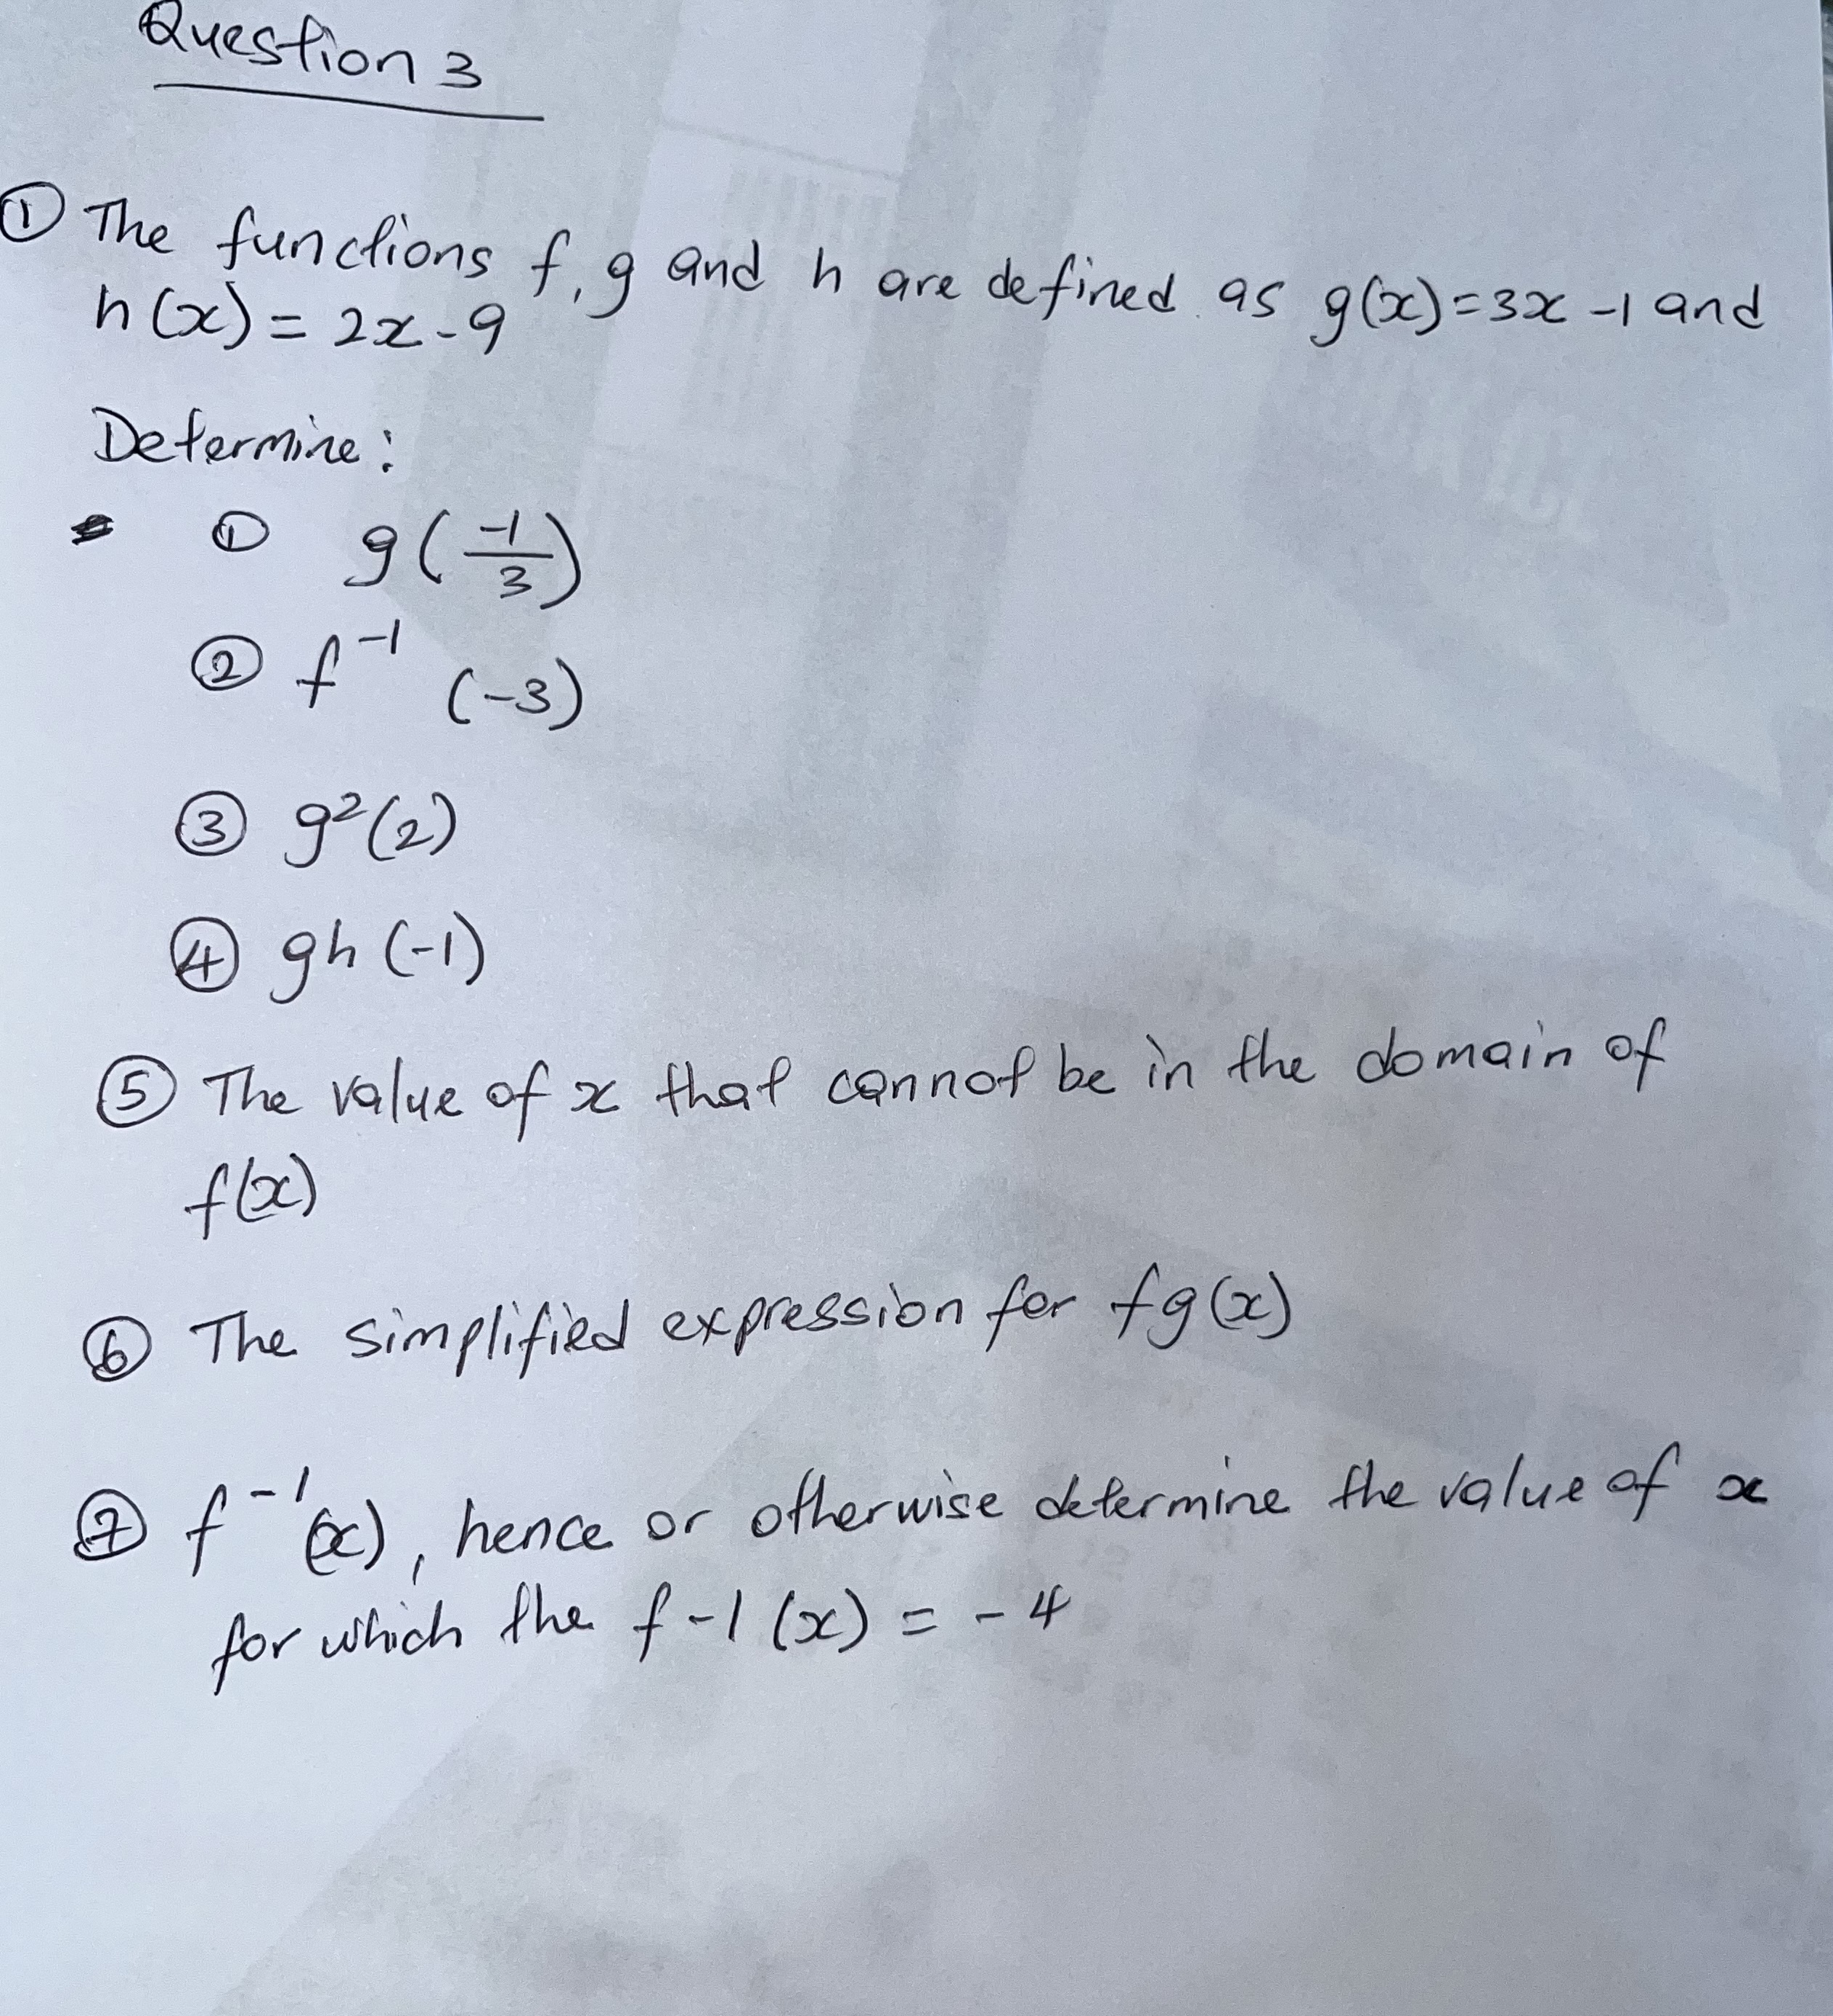 Question 3
① The functions f, g and h are defined as g(x)=3x-1 and
h(x)=2x-9
Determine:
① g(-1/3)
② f⁻¹(-3)
③ g²(2)
④ gh(-1)
⑤ The value of x that cannot be in the domain of
f(x)
⑥ The simplified expression for fg(x)
⑦ f⁻¹(x), hence or otherwise determine the value of x
for which the f-1(x) = -4